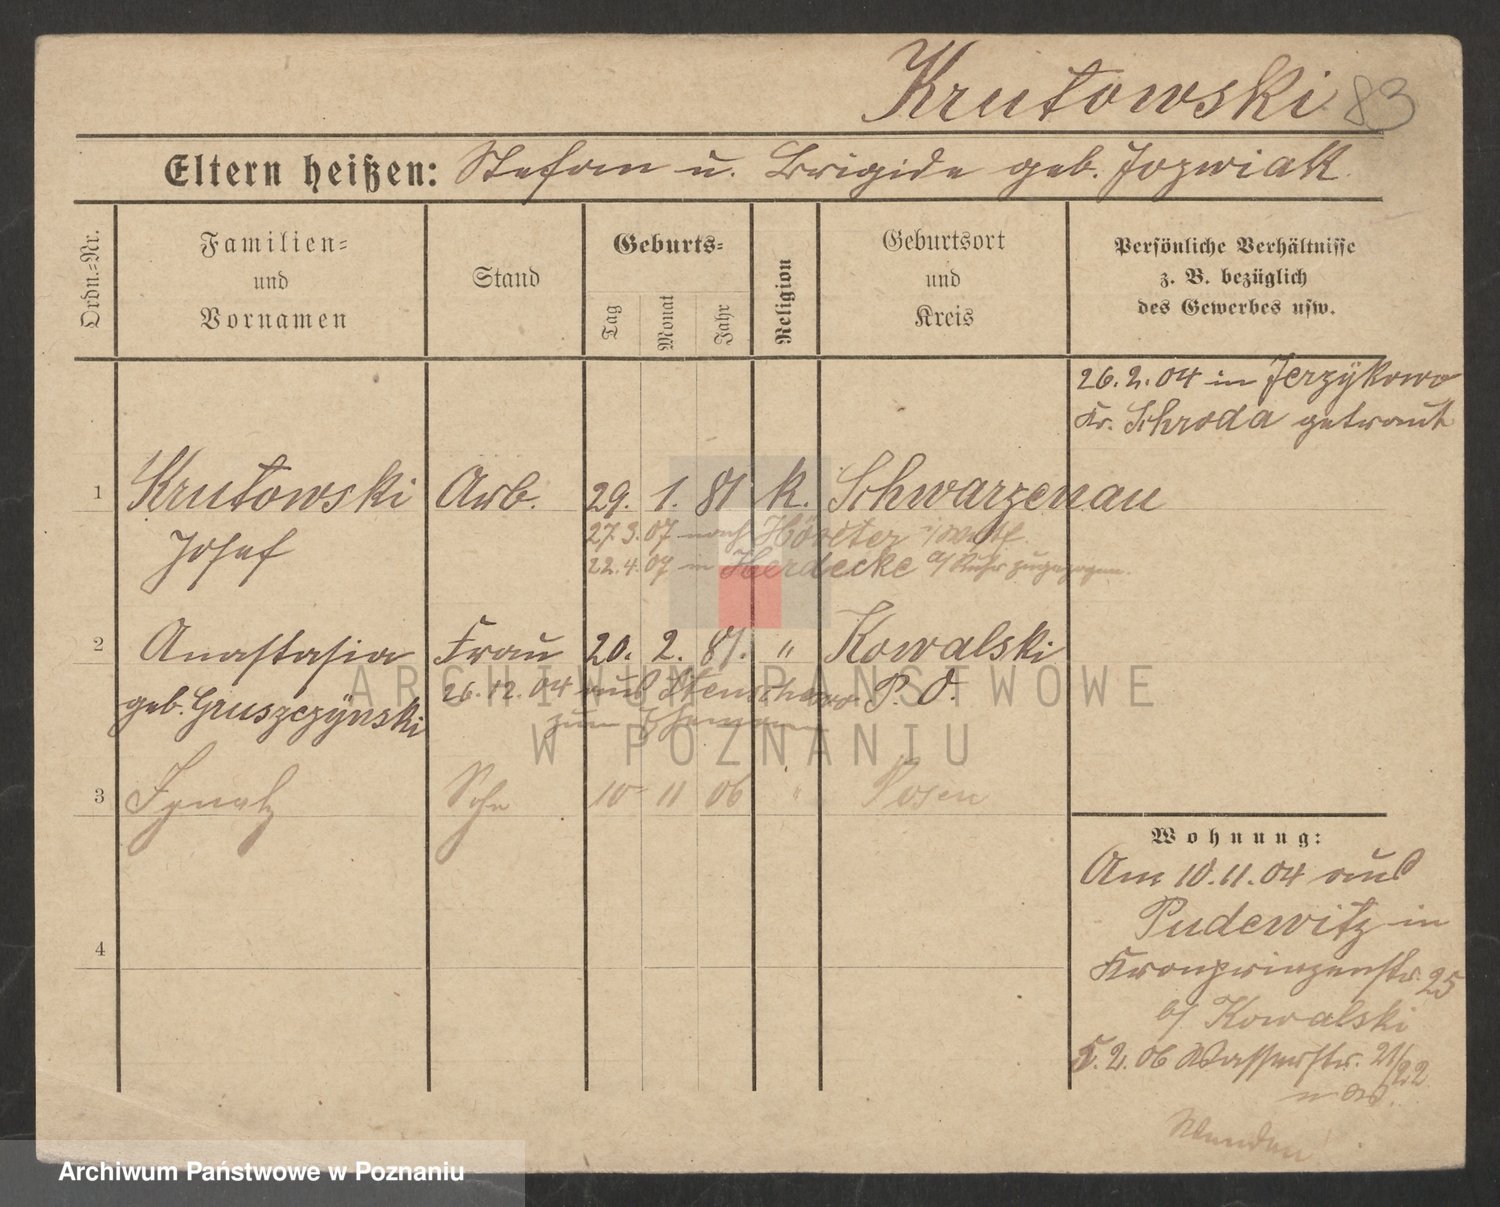 Krutowski 83
Eltern heißen: Stefan u. Brigide geb. Jozwiak
Ordn.-Nr.
Familien-
und
Vornamen
Stand
Geburts-
Tag
Monat
Jahr
Religion
Geburtsort
und
Kreis
Persönliche Verhältnisse
z. B. bezüglich
des Gewerbes usw.
26.2.04 in Jerzÿkowo
Kr. Schroda getraut
1 Krutowski Arb. 29. 1. 81 k. Schwarzenau
Josef
27.3.07 nach Höxter i/Westf.
22.4.07 in Herdecke a/Ruhr zugezogen.
2 Anastasia Frau 20. 2. 81. " Kowalski
geb. Gruszczÿnski 26.12.04 aus P. O.
zum Ehemann
3 Ignatz Sohn 10 11 06 " Posen
4
Wohnung:
Am 10.11.04 aus
Pudewitz in
Kronprinzenstr. 25
b/ Kowalski
5.2.06 Wasserstr. 21/22
Wenden
ARCHIWUM PAŃSTWOWE
W POZNANIU
Archiwum Państwowe w Poznaniu